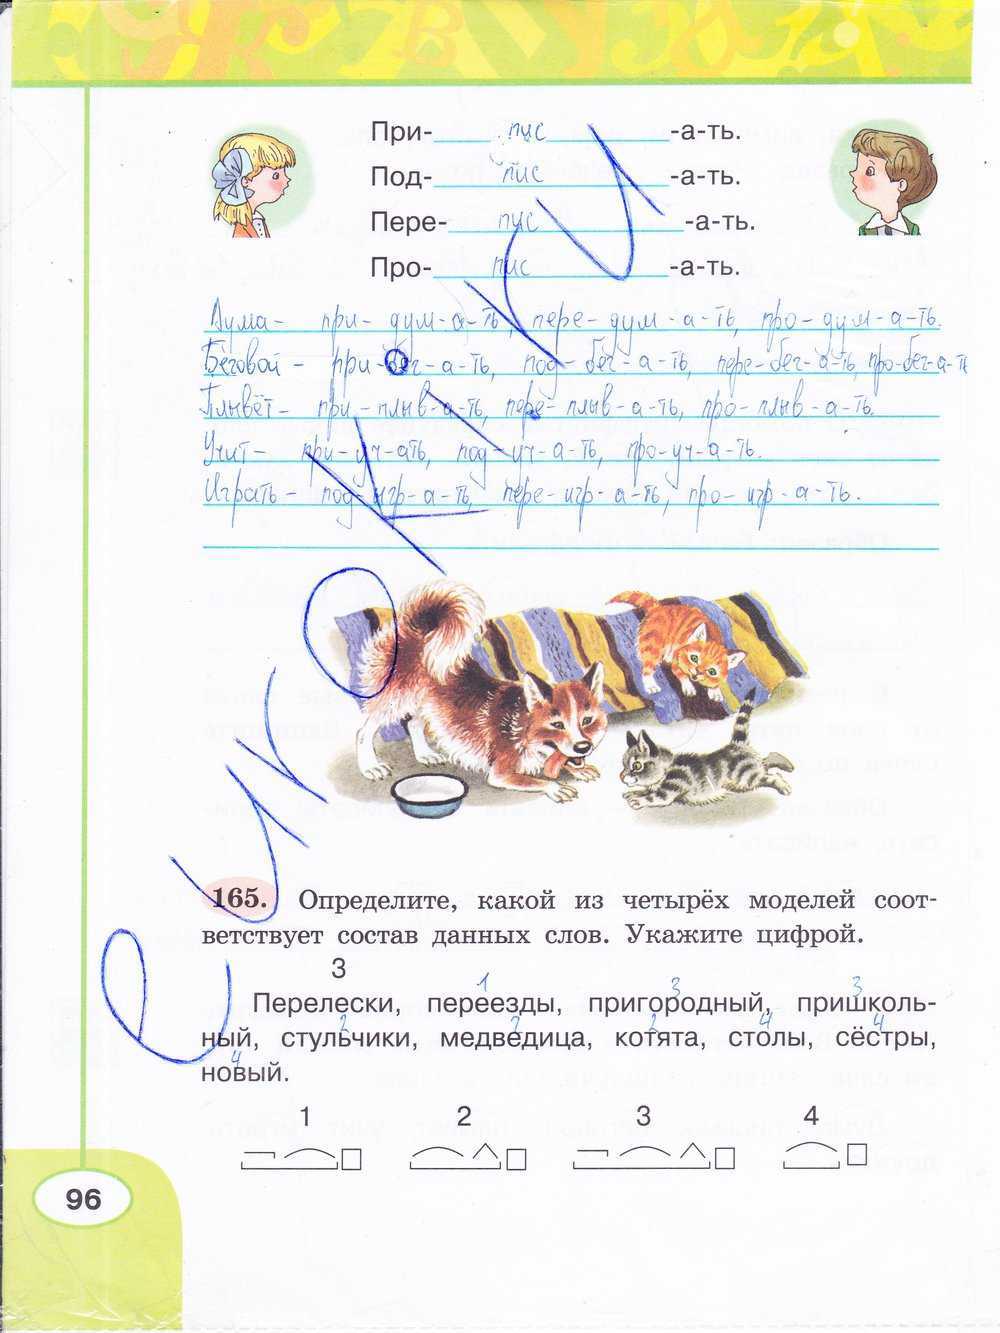 При- пис -а-ть.
Под- пис -а-ть.
Пере- пис -а-ть.
Про- пис -а-ть.
Дума- при- дум-а-ть, пере-дум-а-ть, про-дум-а-ть.
Беговой - при-бег-а-ть, под-бег-а-ть, пере-бег-а-ть, про-бег-а-ть
Плывёт- при-плыв-а-ть, пере-плыв-а-ть, про-плыв-а-ть.
Учит- при-уч-ать, под-уч-а-ть, про-уч-а-ть.
Играть- под-игр-а-ть, пере-игр-а-ть, про-игр-а-ть.
165. Определите, какой из четырёх моделей соот-
ветствует состав данных слов. Укажите цифрой.
3 1 3 3
Перелески, переезды, пригородный, пришколь-
2 2 2 4 4
ный, стульчики, медведица, котята, столы, сёстры,
4
новый.
1 2 3 4
96